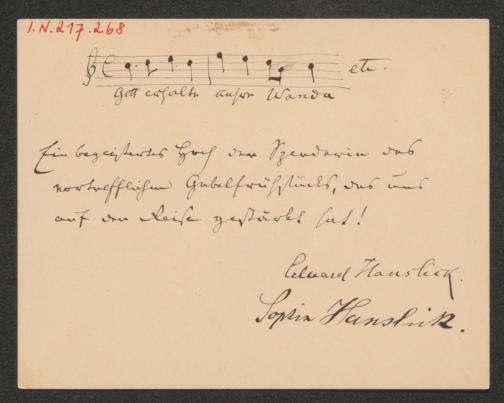 I.N.217.268
etc.
Gott erhalte unsre Wanda
Ein begeistertes Hoch der Spenderin des
vortrefflichen Gabelfrühstücks, das uns
auf der Reise gestärkt hat!
Eduard Hanslick.
Sophie Hanslick.